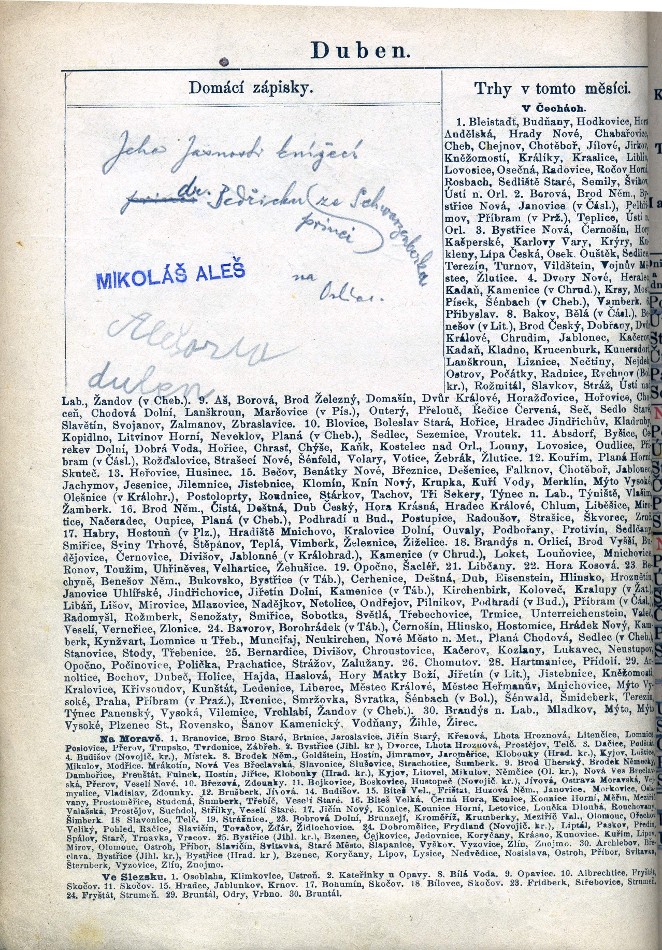 Duben.
Domácí zápisky.
Jeho Jasnosti knížeci
dr. Bedřichu (ze Schwarzenberka
princi
na
MIKOLÁŠ ALEŠ
duben
Trhy v tomto měsíci.
V Čechách.
1. Bleistadt, Budňany, Hodkovice, Hora
Andělská, Hrady Nové, Chabařovice,
Cheb, Chejnov, Chotěboř, Jílové, Jirkov,
Kněžomostí, Králíky, Kraslice, Liblín,
Lovosice, Osečná, Radovice, Ročov Horní,
Rosbach, Sedliště Staré, Semily, Švihov,
Ústí n. Orl. 2. Borová, Brod Něm., By-
střice Nová, Janovice (v Čásl.), Pelhři-
mov, Příbram (v Prž.), Teplice, Ústí n.
Orl. 3. Bystřice Nová, Černošín, Hory
Kašperské, Karlovy Vary, Krýry, Ku-
kleny, Lípa Česká, Osek, Ouštěk, Sedlice,
Terezín, Turnov, Vildštein, Vojnův Mě-
stec, Žlutice. 4. Dvory Nové, Heralec,
Kadaň, Kamenice (v Chrud.), Krsy, Most,
Písek, Šénbach (v Cheb.), Vamberk,
Přibyslav. 8. Bakov, Bělá (v Čásl.), Be-
nešov (v Lit.), Brod Český, Dobřany, Dvůr
Králové, Chrudim, Jablonec, Kačerov,
Kadaň, Kladno, Krucenburk, Kunersdorf,
Lanškroun, Liznice, Nečtiny, Nejdek,
Ostrov, Počátky, Radnice, Rychnov (v
kr.), Rožmitál, Slavkov, Stráž, Ústí na
Lab., Žandov (v Cheb.). 9. Aš, Borová, Brod Železný, Domašín, Dvůr Králové, Horažďovice, Hořovice,
ceň, Chodová Dolní, Lanškroun, Maršovice (v Pís.), Outerý, Přelouč, Řečice Červená, Seč, Sedlo Staré,
Slavětín, Svojanov, Zalmanov, Zbraslavice. 10. Blovice, Boleslav Stará, Hořice, Hradec Jindřichův, Kladruby,
Kopidlno, Litvínov Horní, Neveklov, Planá (v Cheb.), Sedlec, Sezemice, Vroutek. 11. Absdorf, Byšice,
rekev Dolní, Dobrá Voda, Hořice, Chrast, Chýše, Kaňk, Kostelec nad Orl., Louny, Lovosice, Oudlice,
bram (v Čásl.), Rožďalovice, Strašecí Nové, Šénfeld, Volary, Votice, Žebrák, Žlutice. 12. Kouřim, Planá Horní,
Skuteč. 13. Hořovice, Husinec. 15. Bečov, Benátky Nové, Březnice, Dešenice, Falknov, Chotěboř, Jablonec,
Jachymov, Jesenice, Jilemnice, Jistebnice, Klomín, Knín Nový, Krupka, Kuří Vody, Merklín, Mýto Vysoké,
Olešnice (v Králohr.), Postoloprty, Roudnice, Stárkov, Tachov, Tři Sekery, Týnec n. Lab., Týniště, Vlašim,
Žamberk. 16. Brod Něm., Čistá, Deštná, Dub Český, Hora Krásná, Hradec Králové, Chlum, Liběšice,
tice, Načeradec, Oupice, Planá (v Cheb.), Podhradí u Bud., Postupice, Radoušov, Strašice, Škvorec,
17. Habry, Hostouň (v Plz.), Hradiště Mnichovo, Kralovice Dolní, Ouvaly, Podbořany, Protivín, Sedlčany,
Smiřice, Sviny Trhové, Štěpánov, Teplá, Vimberk, Železnice Žiželice. 18. Brandýs n. Orlicí, Brod Vyšší, Bu-
dějovice, Černovice, Divišov, Jablonné (v Králohrad.), Kamenice (v Chrud.), Loket, Louňovice, Mnichovice,
Ronov, Toužim, Uhříněves, Velhartice, Žehušice. 19. Opočno, Šacléř. 21. Libčany. 22. Hora Kosová. 23. Be-
chyně, Benešov Něm., Bukovsko, Bystřice (v Táb.), Cerhenice, Deštná, Dub, Eisenstein, Hlinsko,
Janovice Uhlířské, Jindřichovice, Jiřetín Dolní, Kamenice (v Táb.), Kirchenbirk, Koloveč, Kralupy (v
Libáň, Lišov, Mirovice, Mlazovice, Nadějkov, Netolice, Ondřejov, Pilnikov, Podhradí (v Bud.), Příbram (v Čásl.),
Radomyšl, Rožmberk, Senožaty, Smiřice, Sobotka, Světlá, Třebechovice, Trmice, Unterreichenstein, Valeč,
Veselí, Verneřice, Zlonice. 24. Bavorov, Borohrádek (v Táb.), Černošín, Hlinsko, Hostomice, Hrádek Nový, Kam-
berk, Kynžvart, Lomnice u Třeb., Muncifaj, Neukirchen, Nové Město n. Met., Planá Chodová, Sedlec (v Cheb.),
Stanovice, Stody, Třebenice. 25. Bernardice, Divišov, Chroustovice, Kačerov, Kozlany, Lukavec, Neustupov,
Opočno, Počinovice, Polička, Prachatice, Strážov, Zalužany. 26. Chomutov. 28. Hartmanice, Přídolí. 29.
noltice, Bochov, Dubeč, Holice, Hajda, Haslová, Hory Matky Boží, Jiřetín (v Lit.), Jistebnice, Kněžomostí,
Kralovice, Křivsoudov, Kunštát, Ledenice, Liberec, Městec Králové, Městec Heřmanův, Mnichovice, Mýto Vy-
soké, Praha, Příbram (v Praž.), Rvenice, Smržovka, Svratka, Šénbach (v Bol.), Šénwald, Šmideberk,
Týnec Panenský, Vysoká, Vilomice, Vrchlabí, Žandov (v Cheb.). 30. Brandýs n. Lab., Mladkov, Mýto,
Vysoké, Plzenec St., Rovensko, Šanov Kamenický, Vodňany, Žihle, Žírec.
Na Moravě. 1. Branovice, Brno Staré, Brtnice, Jaroslavice, Jičín Starý, Křenová, Lhota Hroznová, Litenčice, Lomnice,
Poslovice, Přerov, Trupsko, Tvrdonice, Zábřeh. 2. Bystřice (Jihl. kr.), Dvorce, Lhota Hroznová, Prostějov, Telč. 3. Dačice,
4. Budišov (Novojič. kr.), Místek. 8. Brodek Něm., Goldštein, Hostín, Jimramov, Jaroměřice, Klobouky (Hrad. kr.), Kyjov,
Mikulov, Modřice, Mrákotín, Nová Ves Břeclavská, Slavonice, Slušovice, Strachotice, Šumberk. 9. Brod Uherský, Brodek
Dambořice, Frenštát, Fulnek, Hostín, Jiřice, Klobouky (Hrad. kr.), Kyjov, Litovel, Mikulov, Němčice (Ol. kr.), Nová Ves
ská, Přerov, Veselí Nové. 10. Březová, Zdounky. 11. Bojkovice, Boskovice, Hustopeč (Novojič. kr.), Jívová, Ostrava Moravská,
myslice, Vladislav, Zdounky. 12. Brušberk, Jívová. 14. Budišov. 15. Bíteš Vel., Frištat, Huzová Něm., Janovice, Morkovice,
vany, Prostoměřice, Studená, Šumberk, Třebíč, Veselí Staré. 16. Bíteš Velká, Černá Hora, Konice, Kounice Horní, Měřín,
Valašská, Prostějov, Suchdol, Střílky, Veselí Staré. 17. Jičín Nový, Konice, Kounice Horní, Letovice, Loučka Dlouhá,
Šimberk. 18. Slavonice, Telč. 19. Strážnice. 23. Bobrova Dolní, Brunzejf, Kroměříž, Krumberky, Meziříč Val., Olomouc,
Velký, Pohled, Račice, Slavičín, Tovačov, Žďár, Židlochovice. 24. Dobroměřice, Frydland (Novojič. kr.), Liptál,
Spálov, Stařč, Trnavka, Vracov. 25. Bystřice (Jihl. kr.), Bzenec, Čejkovice, Jedovnice, Koryčany, Krásno, Kunovice,
Mírov, Olomouc, Ostroh, Příbor, Slavičín, Svitavka, Staré Město, Šlapanice, Vyškov, Vyzovice, Zlín, Znojmo. 30. Archlebov,
clava, Bystřice (Jihl. kr.), Bystřice (Hrad. kr.), Bzenec, Koryčany, Lipov, Lysice, Nedvědice, Nosislava, Ostroh, Příbor, Svitava,
Šternberk, Vyzovice, Zlín, Znojmo.
Ve Slezsku. 1. Osoblaha, Klimkovice, Ustroň. 2. Kateřinky u Opavy. 8. Bílá Voda. 9. Opavice. 10. Albrechtice,
Skočov. 11. Skočov. 15. Hradec, Jablunkov, Krnov. 17. Bohumín, Skočov. 18. Bílovec, Skočov. 23. Fridberk, Střebovice,
24. Fryštát, Strumeň. 29. Bruntál, Odry, Vrbno. 30. Bruntál.